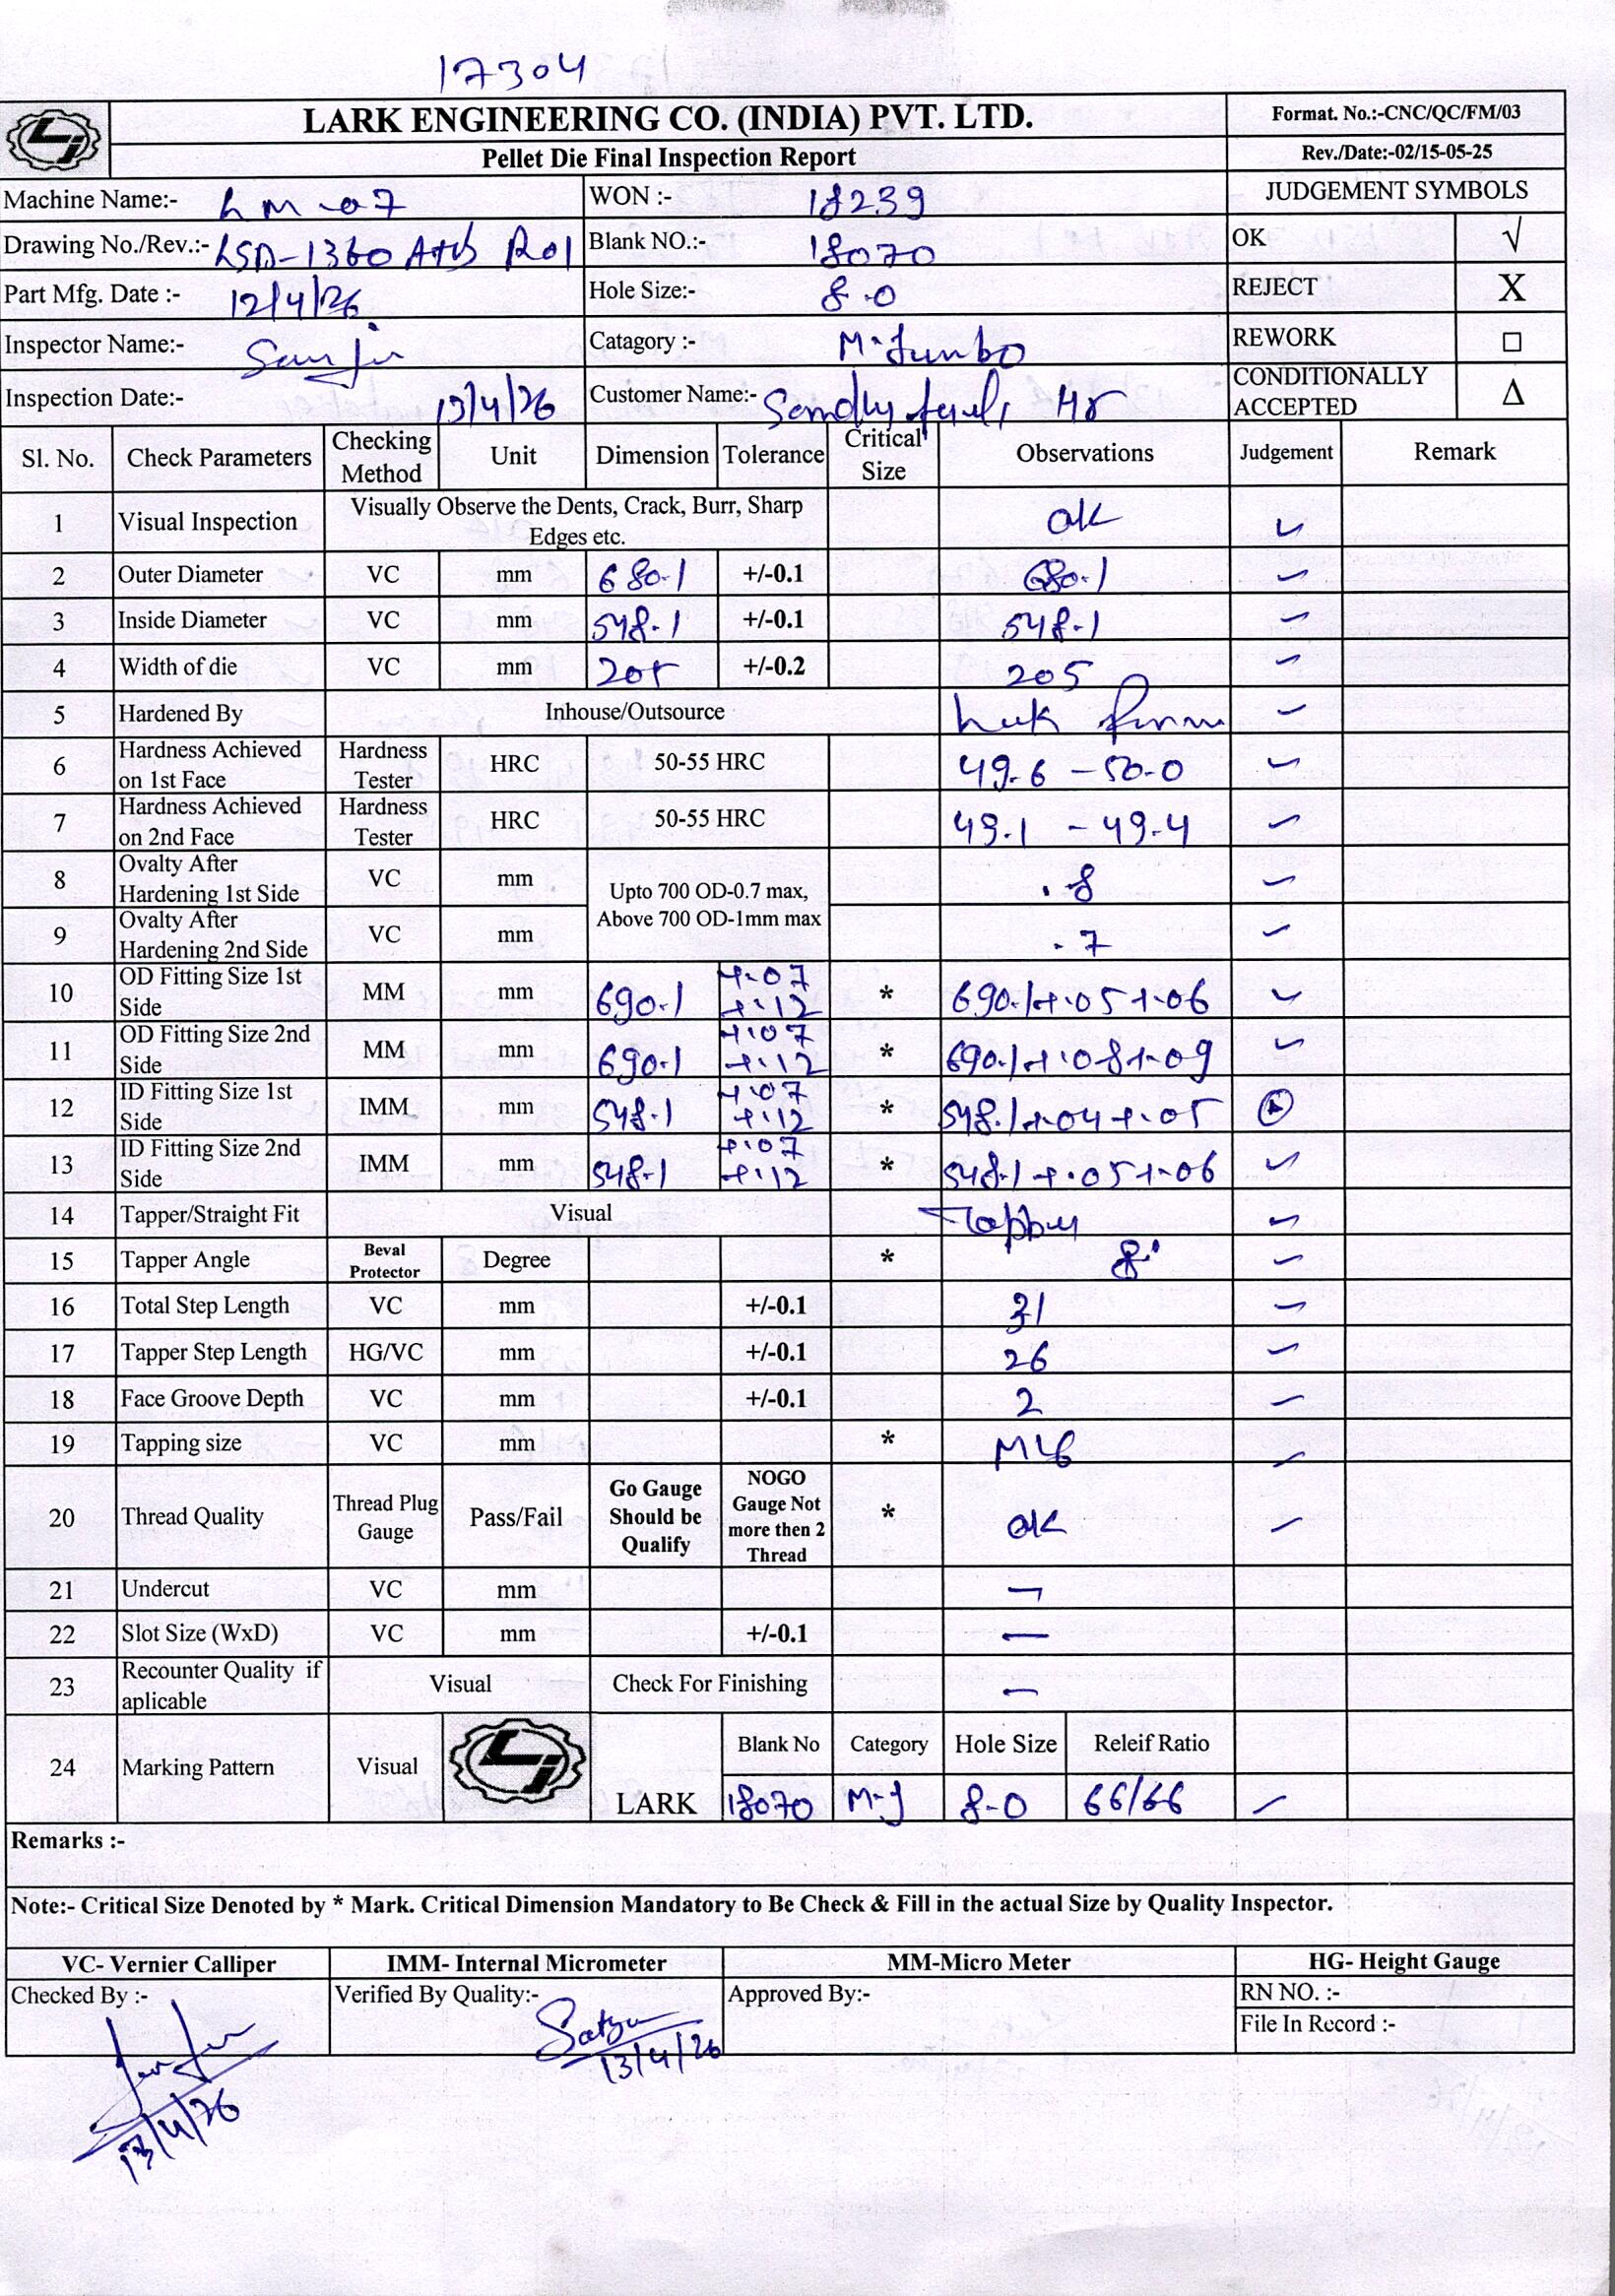 17304
LARK ENGINEERING CO. (INDIA) PVT. LTD.
Format. No.:-CNC/QC/FM/03
Pellet Die Final Inspection Report
Rev./Date:-02/15-05-25
Machine Name:- LM-07 WON :- 18239 JUDGEMENT SYMBOLS
Drawing No./Rev.:- LSD-1360 A+B R01 Blank NO.:- 18070 OK √
Part Mfg. Date :- 12/4/26 Hole Size:- 8.0 REJECT X
Inspector Name:- Catagory :- M-Jumbo REWORK □
Inspection Date:- 13/4/26 Customer Name:- CONDITIONALLY ACCEPTED Δ
Sl. No. Check Parameters Checking Method Unit Dimension Tolerance Critical Size Observations Judgement Remark
1 Visual Inspection Visually Observe the Dents, Crack, Burr, Sharp Edges etc. ok ✓
2 Outer Diameter VC mm 680.1 +/-0.1 680.1 ✓
3 Inside Diameter VC mm 548.1 +/-0.1 548.1 ✓
4 Width of die VC mm 205 +/-0.2 205 ✓
5 Hardened By Inhouse/Outsource ✓
6 Hardness Achieved on 1st Face Hardness Tester HRC 50-55 HRC 49.6 - 50.0 ✓
7 Hardness Achieved on 2nd Face Hardness Tester HRC 50-55 HRC 49.1 - 49.4 ✓
8 Ovalty After Hardening 1st Side VC mm Upto 700 OD-0.7 max, Above 700 OD-1mm max .8 ✓
9 Ovalty After Hardening 2nd Side VC mm .7 ✓
10 OD Fitting Size 1st Side MM mm 690.1 +.07 +.12 * 690.1+.05+.06 ✓
11 OD Fitting Size 2nd Side MM mm 690.1 +.07 +.12 * 690.1+.08+.09 ✓
12 ID Fitting Size 1st Side IMM mm 548.1 +.07 +.12 * 548.1+.04+.05
13 ID Fitting Size 2nd Side IMM mm 548.1 +.07 +.12 * 548.1+.05+.06 ✓
14 Tapper/Straight Fit Visual Tapper ✓
15 Tapper Angle Beval Protector Degree * 8° ✓
16 Total Step Length VC mm +/-0.1 31 ✓
17 Tapper Step Length HG/VC mm +/-0.1 26 ✓
18 Face Groove Depth VC mm +/-0.1 2 ✓
19 Tapping size VC mm * M16 ✓
20 Thread Quality Thread Plug Gauge Pass/Fail Go Gauge Should be Qualify NOGO Gauge Not more then 2 Thread * ok ✓
21 Undercut VC mm -
22 Slot Size (WxD) VC mm +/-0.1 -
23 Recounter Quality if aplicable Visual Check For Finishing -
24 Marking Pattern Visual LARK Blank No Category Hole Size Releif Ratio
18070 M-J 8-0 66/66 ✓
Remarks :-
Note:- Critical Size Denoted by * Mark. Critical Dimension Mandatory to Be Check & Fill in the actual Size by Quality Inspector.
VC- Vernier Calliper IMM- Internal Micrometer MM-Micro Meter HG- Height Gauge
Checked By :- Verified By Quality:- Approved By:- RN NO. :-
File In Record :-
Satya
13/4/26
13/4/26